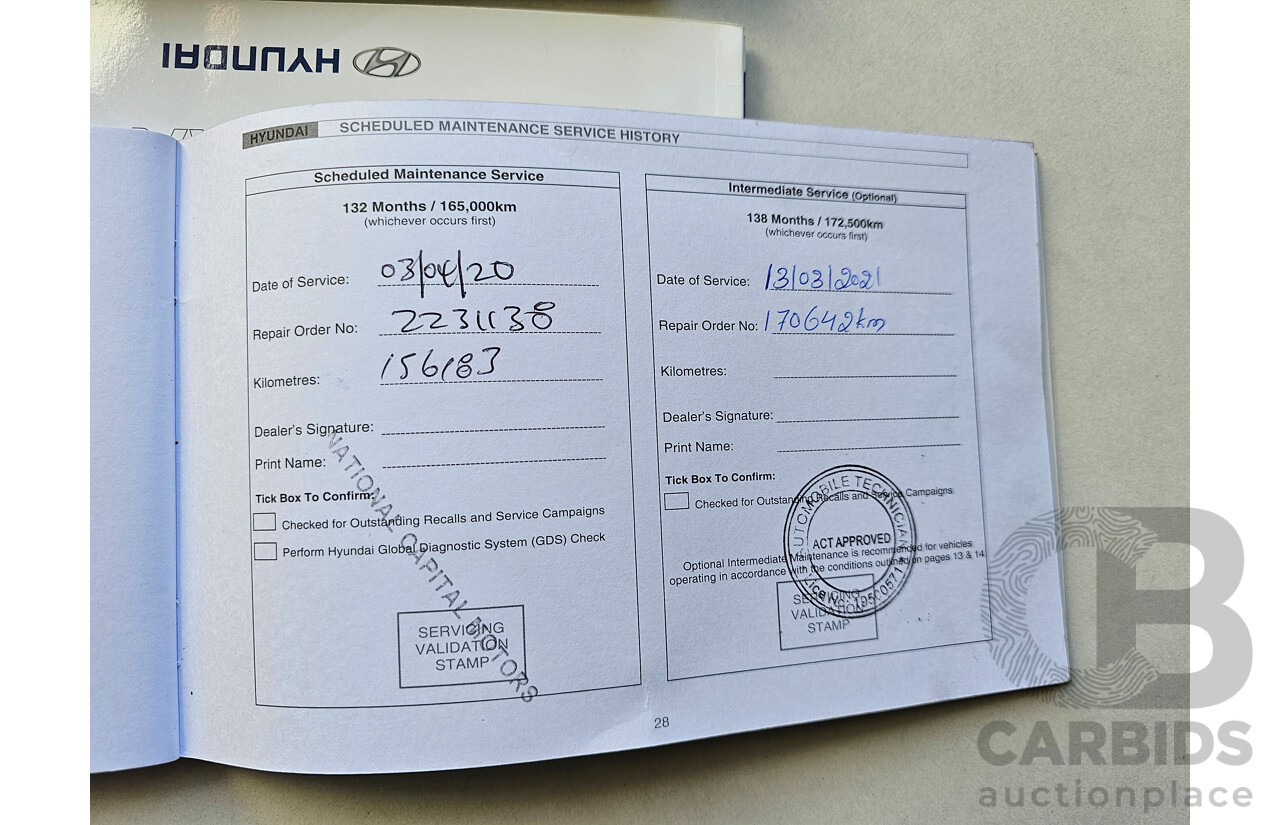 HYUNDAI
HYUNDAI SCHEDULED MAINTENANCE SERVICE HISTORY
Scheduled Maintenance Service
132 Months / 165,000km
(whichever occurs first)
Date of Service: 03/04/20
Repair Order No: 2231138
Kilometres: 156183
Dealer's Signature:
Print Name:
Tick Box To Confirm:
Checked for Outstanding Recalls and Service Campaigns
Perform Hyundai Global Diagnostic System (GDS) Check
NATIONAL CAPITAL MOTORS
SERVICING
VALIDATION
STAMP
Intermediate Service (Optional)
138 Months / 172,500km
(whichever occurs first)
Date of Service: 13/03/2021
Repair Order No: 170642km
Kilometres:
Dealer's Signature:
Print Name:
Tick Box To Confirm:
Checked for Outstanding Recalls and Service Campaigns
Optional Intermediate Maintenance is recommended for vehicles
operating in accordance with the conditions outlined on pages 13 & 14.
AUTOMOBILE TECHNICIAN
ACT APPROVED
SERVICING
VALIDATION
STAMP
28
CB
CARBIDS
auctionplace